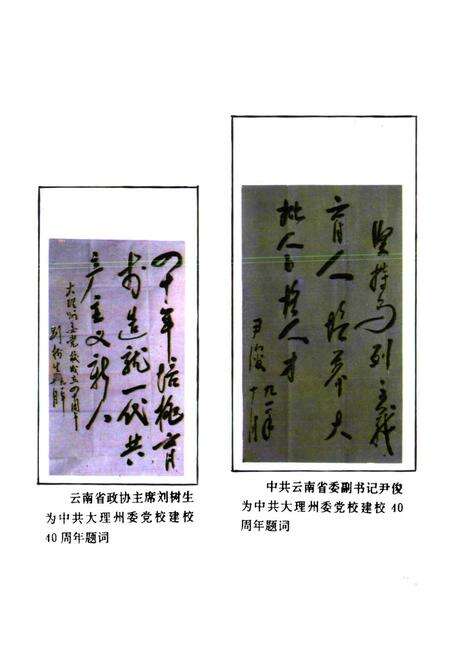 四十年培桃育
李造就一代共
产主义新人
大理州委党校成立四十周年
刘树生 九一年 月
云南省政协主席刘树生
为中共大理州委党校建校
40周年题词
坚持马列主义
育人培养大
批人才
尹俊
九一年
十月
中共云南省委副书记尹俊
为中共大理州委党校建校 40
周年题词